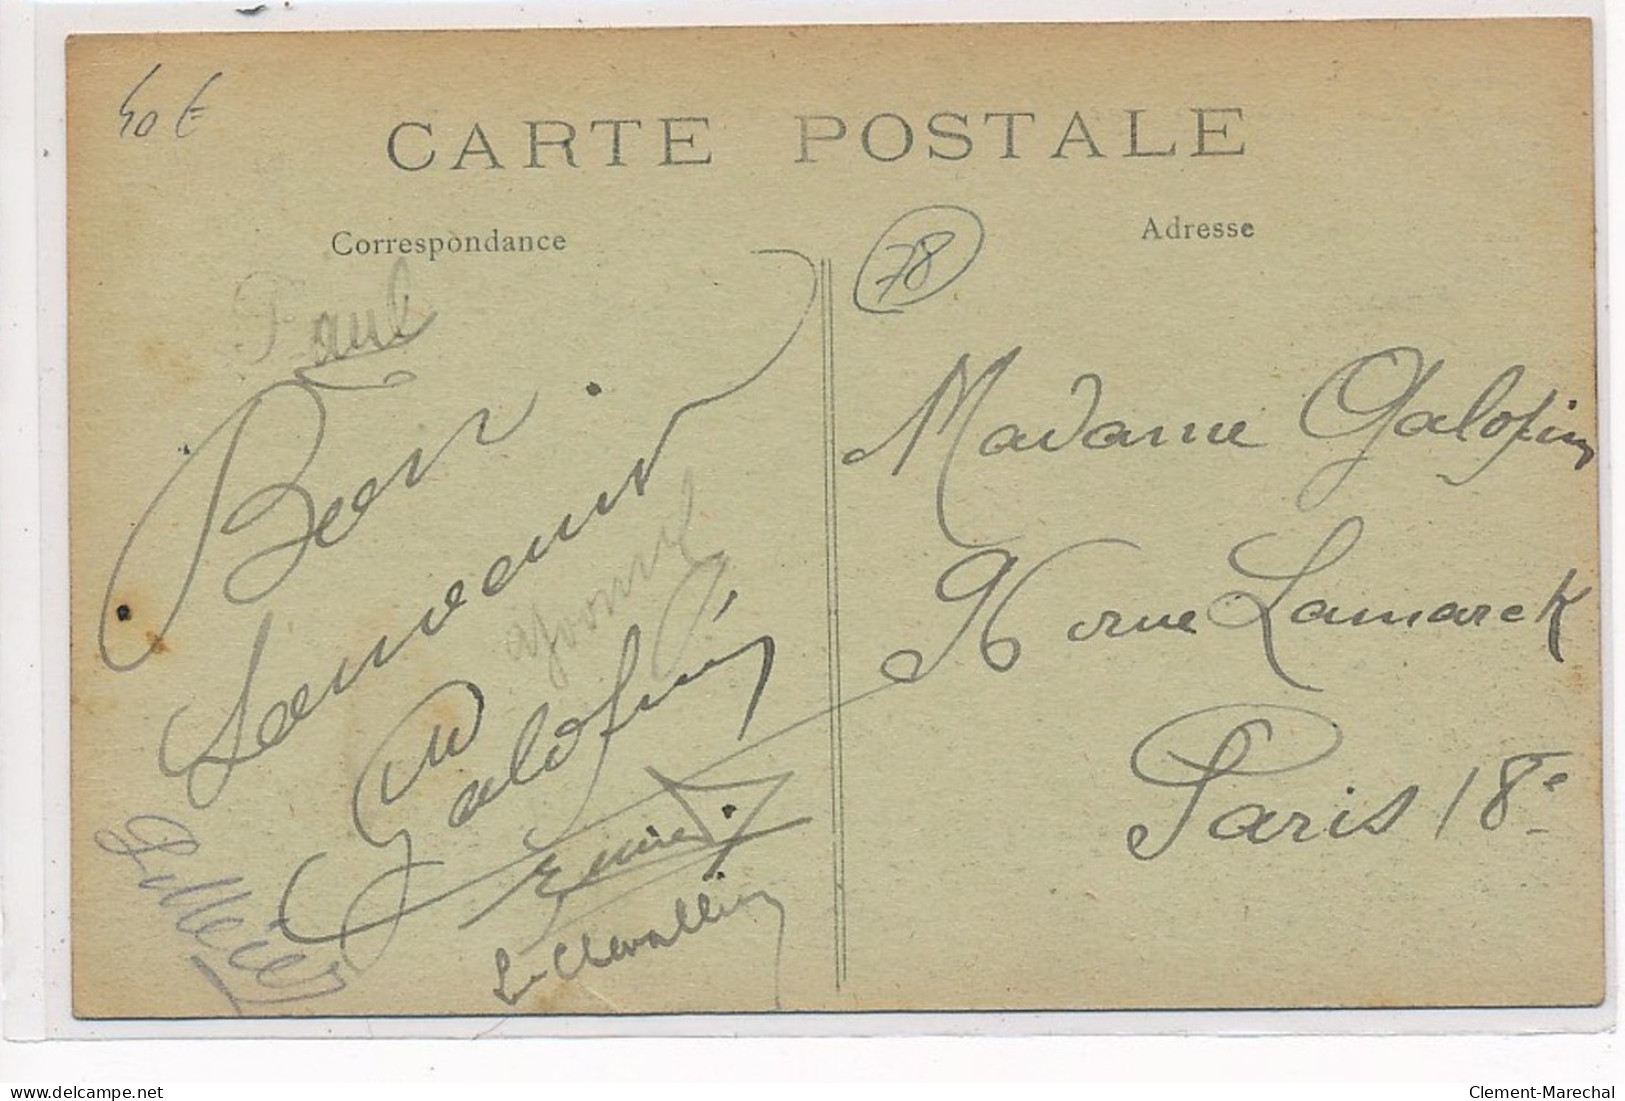 40 €
CARTE POSTALE
Correspondance
Adresse
78
Paul
Bon
Souvenir
Galopin
Madame Galopin
96 rue Lamarck
Paris 18e
delcampe.net
Clement-Marechal